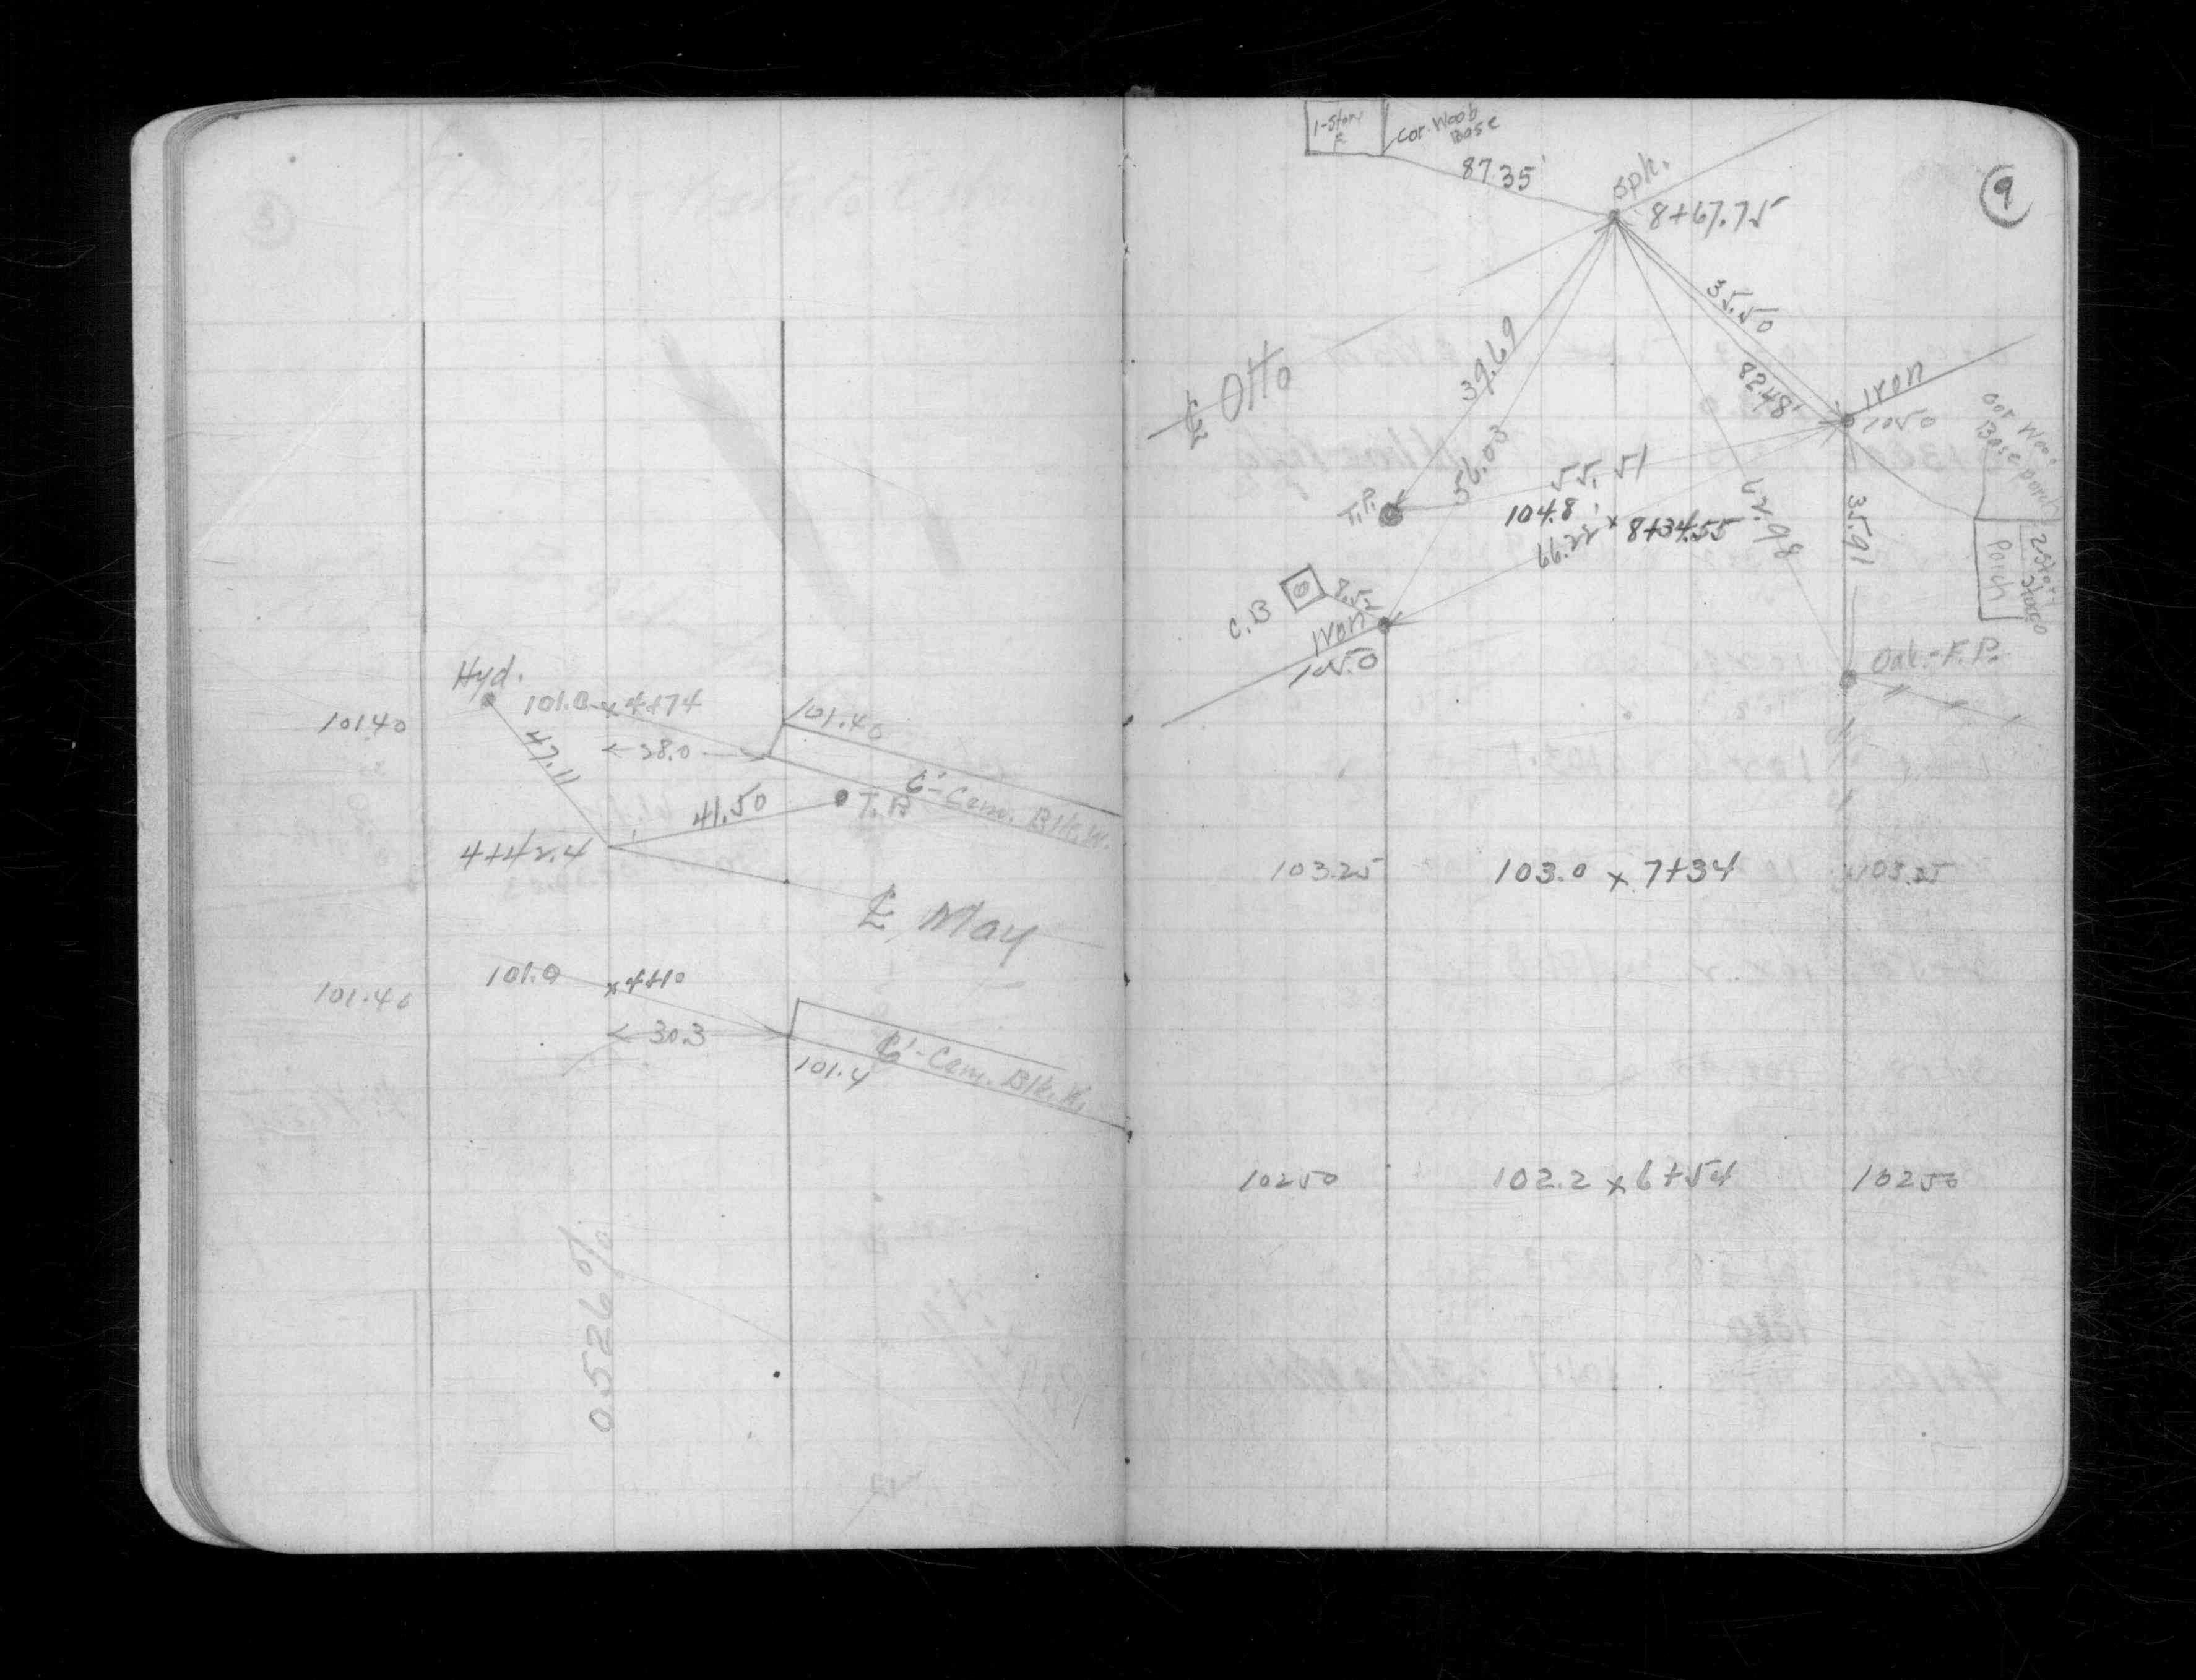 Hyd.
101.0 x 4+74
101.40
10140
47.11
38.0
41.50
T.P.
6'- Cem. Blk. W.
4+42.4
℄ May
101.0 x 4+10
101.40
30.3
6'- Cem. Blk. W.
101.4
0.526%
9
1-Story
Cor. Wood
Base
8735'
Spk.
8+67.75
35.50
82.48'
39.69
℄ Otto
Iron
1050
Cor Wood
Base porch
56.03
55.51
T.P.
104.8' x 8+34.55
66.22
62.98
35.91
Porch
2 Story
C.B
8.52
Iron
105.0
Oak.-F.P.
103.25
103.0 x 7+34
103.25
10250
102.2 x 6+54
10250